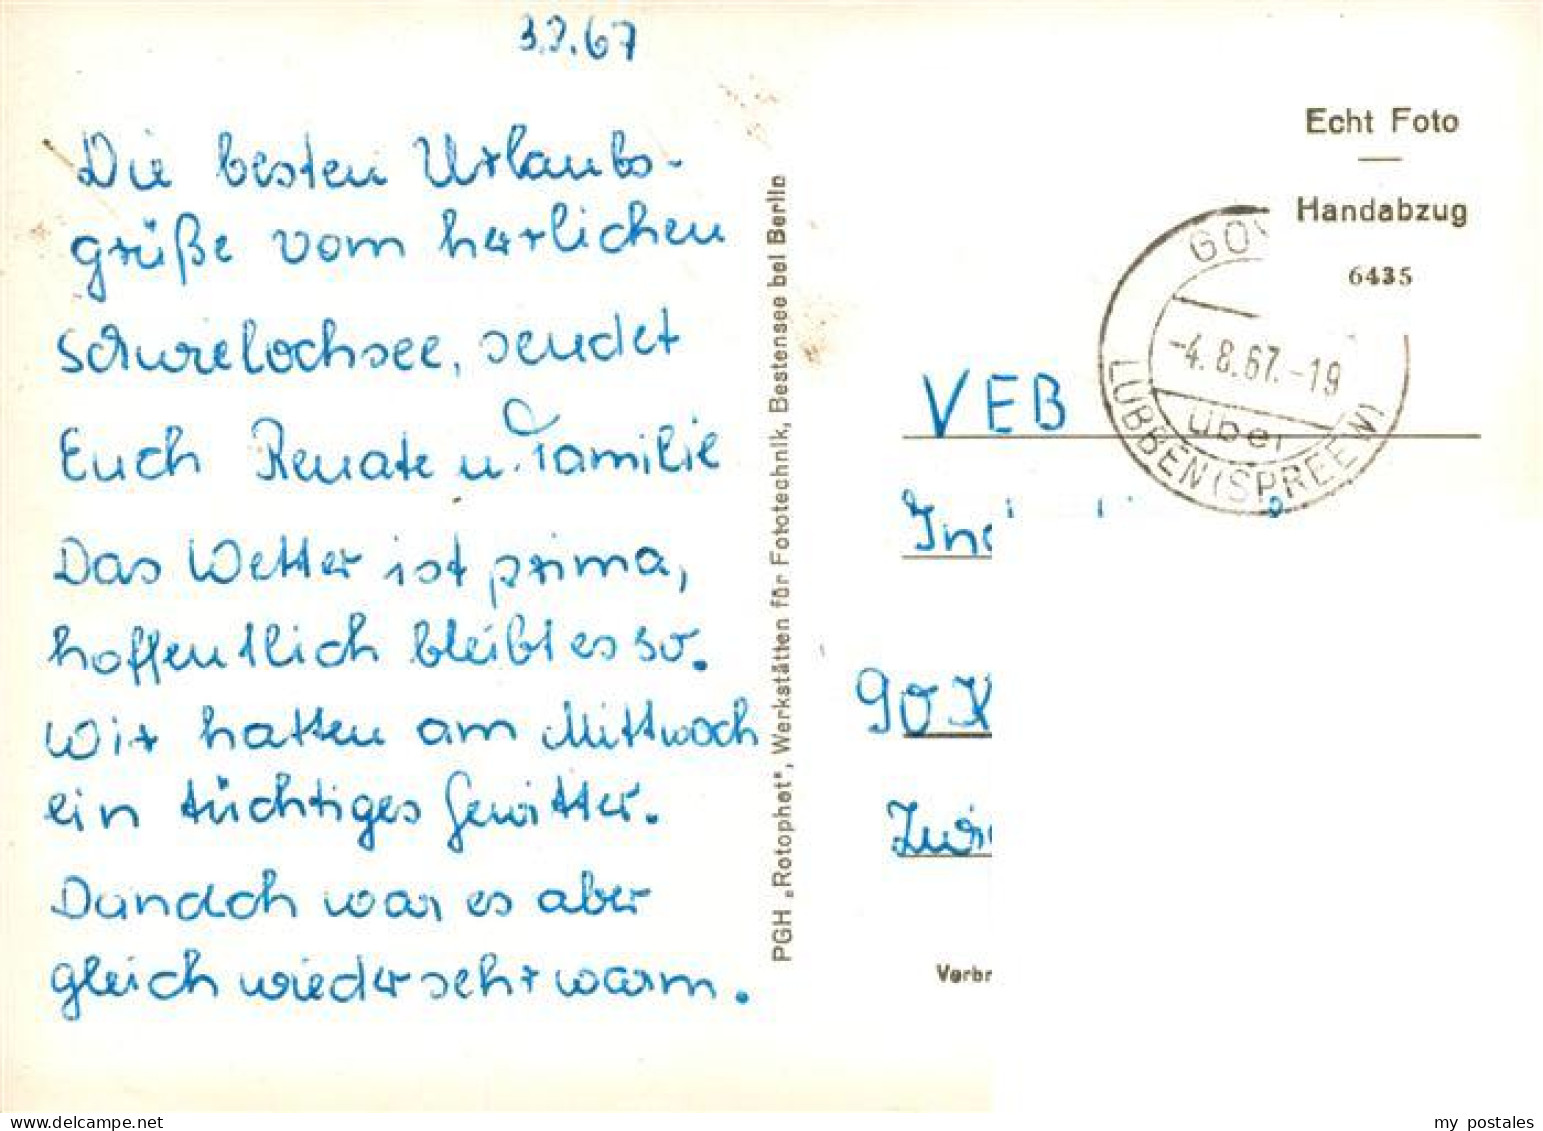 3.8.67
Die besten Urlaubs-
grüße vom herrlichen
Schwielochsee, sendet
Euch Renate u. Familie
Das Wetter ist prima,
hoffentlich bleibt es so.
Wir hatten am Mittwoch
ein tüchtiges Gewitter.
Danach war es aber
gleich wieder sehr warm.
PGH „Rotophot", Werkstätten für Fototechnik, Bestensee bei Berlin
Echt Foto
Handabzug
6435
GOY
-4.8.67.-19
über
LÜBBEN (SPREEW)
VEB
90
Verbr
my postales